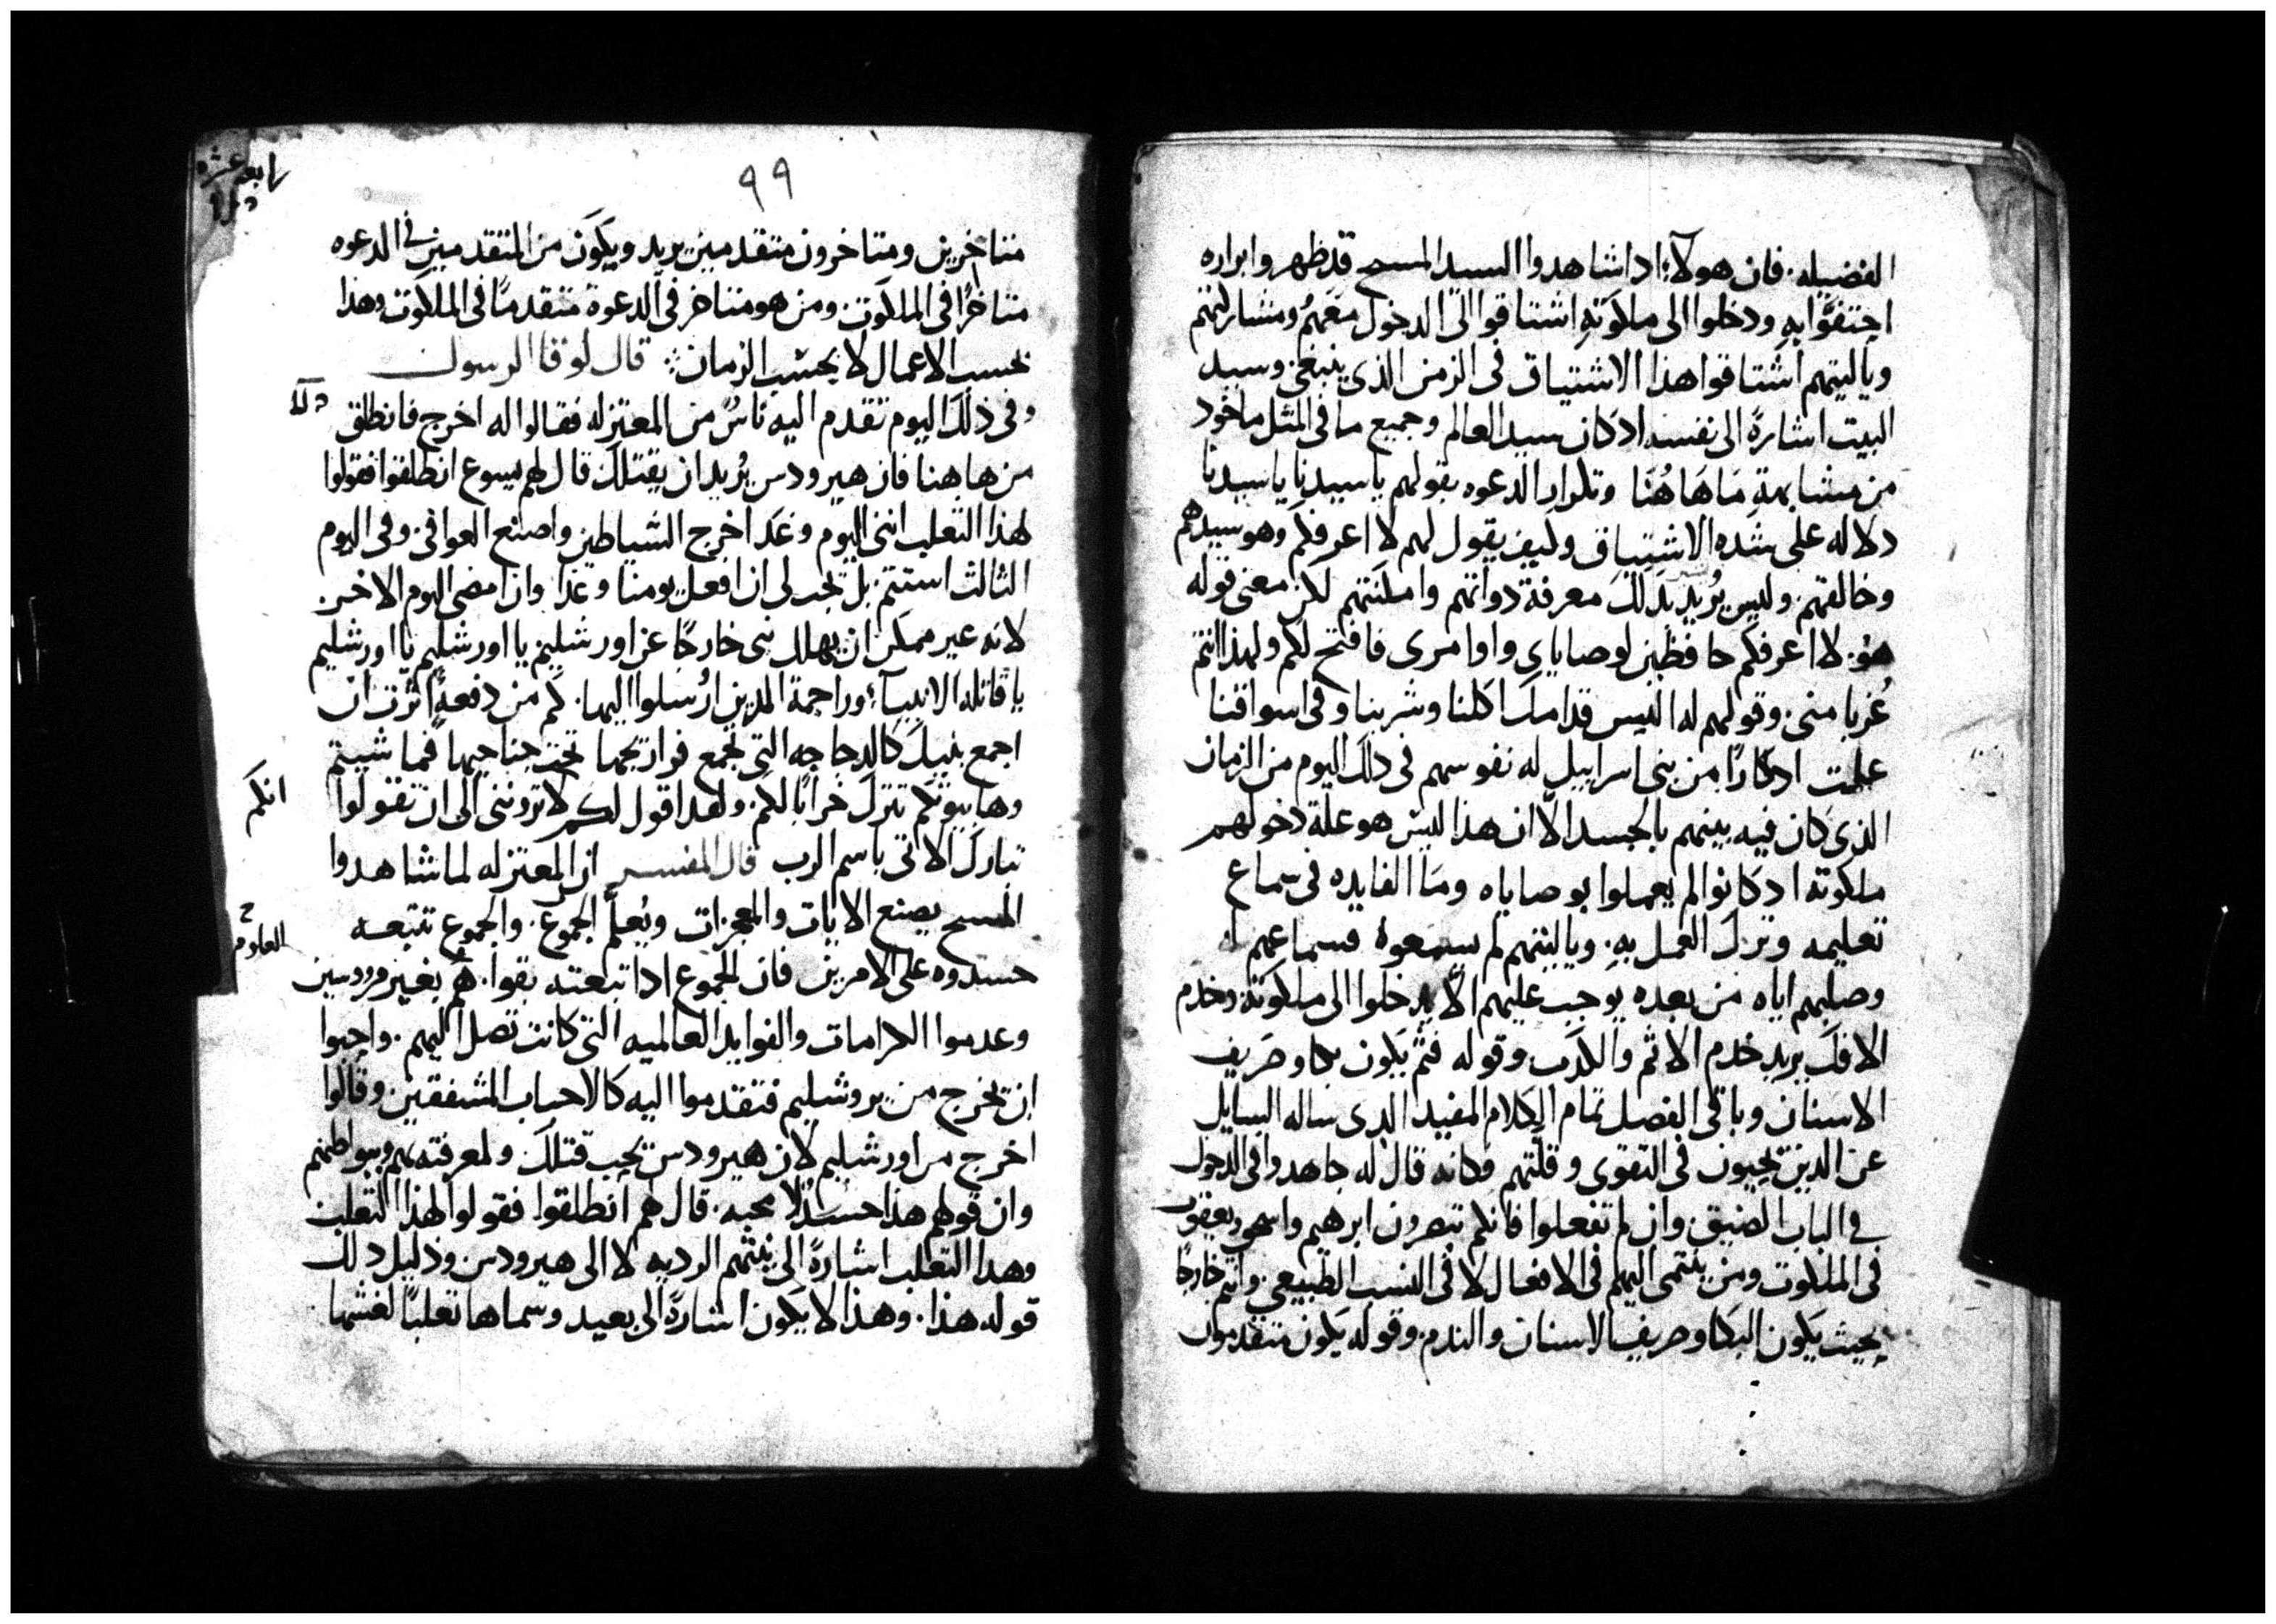 الفضيله. فان هولآء اذا شاهدوا السيد المسيح قد ظهر وابراره
احتفوا به ودخلوا الى ملكوته اشتاقوا الى الدخول معهم ومشاركتهم
وياليتهم اشتاقوا هذا الاشتياق فى الزمن الذى ينبغى وسيد
البيت اشارة الى نفسه اذ كان سيد العالم وجميع ما فى المثل ماخوذ
من مشابهة ما هاهنا وتكرار الدعوه بقولهم ياسيدنا ياسيدنا
دلاله على شده الاشتياق وكيف يقول لهم لا اعرفكم وهو سيدهم
وخالقهم. وليس يريد بذلك معرفة دواتهم وامكنتهم لكن معنى قوله
هو. لا اعرفكم حافظين لوصاياى واوامرى فافتح لكم ولهذا انتم
غربا منى. وقولهم له اليس قدامك اكلنا وشربنا وفى اسواقنا
علمت ادكارا من بنى اسراييل له نفوسهم فى ذلك اليوم من الزمان
الذى كان فيه بينهم بالجسد الا ان هذا ليس هو علة دخولهم
ملكوته اد كانوا لم يعملوا بوصاياه وما الفايده فى سماع
تعليمه وترك العمل به. وياليتهم لم يسمعوه فسماعهم
وصلبهم اياه من بعده يوجب عليهم الا يدخلوا الى ملكوته. وخدم
الافك يريد خدم الاثم والكدب وقوله فثم يكون بكا وصريف
الاسنان وباقى الفصل تمام الكلام المفيد الدى ساله السايل
عن الدين يحيون فى التقوى وقلتهم وكانه قال له جاهدوا فى الدخول
فى الباب الضيق. وان لم تفعلوا فانكم تبصرون ابرهيم واسحق ويعقوب
فى الملكوت ومن ينتمى اليهم فى الافعال لا فى النسب الطبيعى وانتم خارجا
بحيث يكون البكا وصريف الاسنان والندم. وقوله يكون متقدمون
٩٩
متاخرين ومتاخرون متقدمين يريد ويكون من المتقدمين فى الدعوه
متاخرا فى الملكوت ومن هو متاخر فى الدعوة متقدما فى الملكوت وهذا
بحسب الاعمال لا بحسب الزمان: قال لوقا الرسول
وفى ذلك اليوم تقدم اليه ناس من المعتزله فقالوا له اخرج فانطلق
من هاهنا فان هيرودس يريد ان يقتلك قال لهم يسوع انطلقوا فقولوا
لهذا الثعلب اننى اليوم وغدا اخرج الشياطين واصنع العوافى. وفى اليوم
الثالث استتم. بل يجب لى ان افعل يومنا وغدا. وان امضى اليوم الاخر.
لانه غير ممكن ان يهلك نبى خارجا عن اورشليم يا اورشليم يا اورشليم
يا قاتله الانبيآء وراجمة الدين ارسلوا اليها. كم من دفعة اثرت ان
اجمع بنيك كالدجاجه التى تجمع فراريجها تحت جناحيها فما شيتم
وها بيوتكم تترك خرابا لكم. ولقد اقول لكم لا تروننى الى ان تقولوا
انكم
تبارك الاتى باسم الرب قال المفسر ان المعتزله لما شاهدوا
المسيح يصنع الايات والمعجزات ويعلم الجموع. والجموع تتبعه
العلوم
حسدوه على الامرين فان الجموع ادا تبعته بقوا. هم بغير مرووسين
وعدموا الكرامات والفوايد العالميه التى كانت تصل اليهم. واحبوا
ان يخرج من يروشليم فتقدموا اليه كالاحباب المشفقين وقالوا
اخرج من اورشليم لان هيرودس يحب قتلك ولمعرفته بهم وببواطنهم
وان قولهم هذا حسد لا محبه. قال لهم انطلقوا فقولوا لهذا الثعلب
وهدا الثعلب اشارة الى نيتهم الرديه لا الى هيرودس ودليل دلك
قوله هذا. وهذا لا يكون اشارة الى بعيد وسماها ثعلبا لغشها